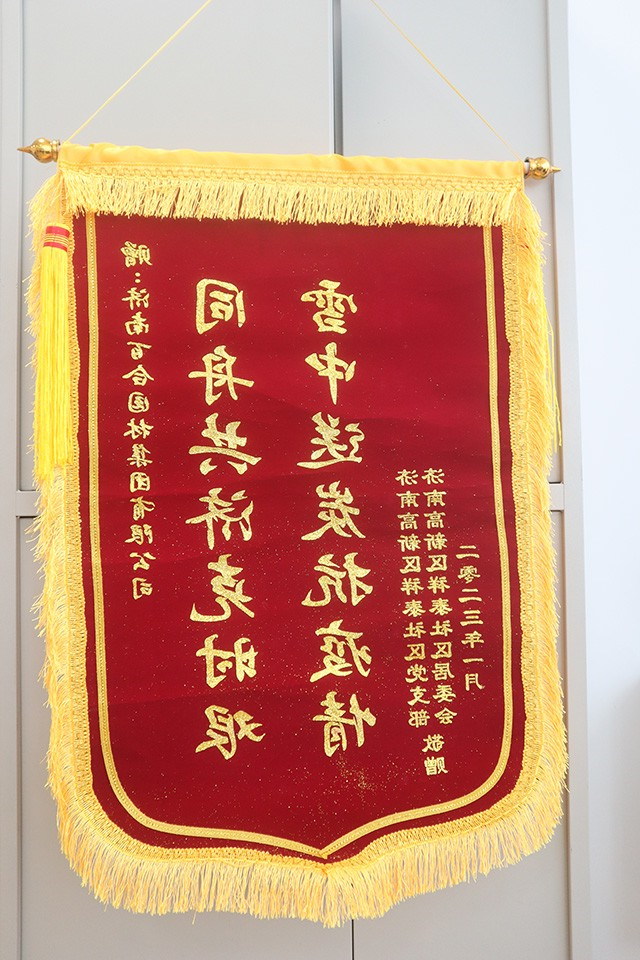 赠：济南百合园林集团有限公司
同舟共济克时艰
雪中送炭抗疫情
济南高新区祥泰社区党支部
济南高新区祥泰社区居委会
敬赠
二零二三年一月